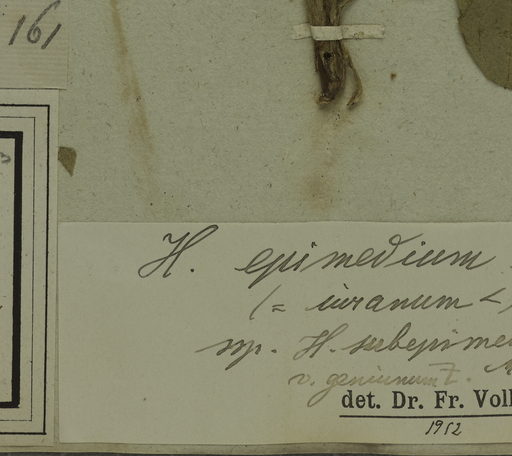 161
H. epimedium
(= iuranum <
ssp. H. subepime
v. genuinum Z.
det. Dr. Fr. Voll
1952